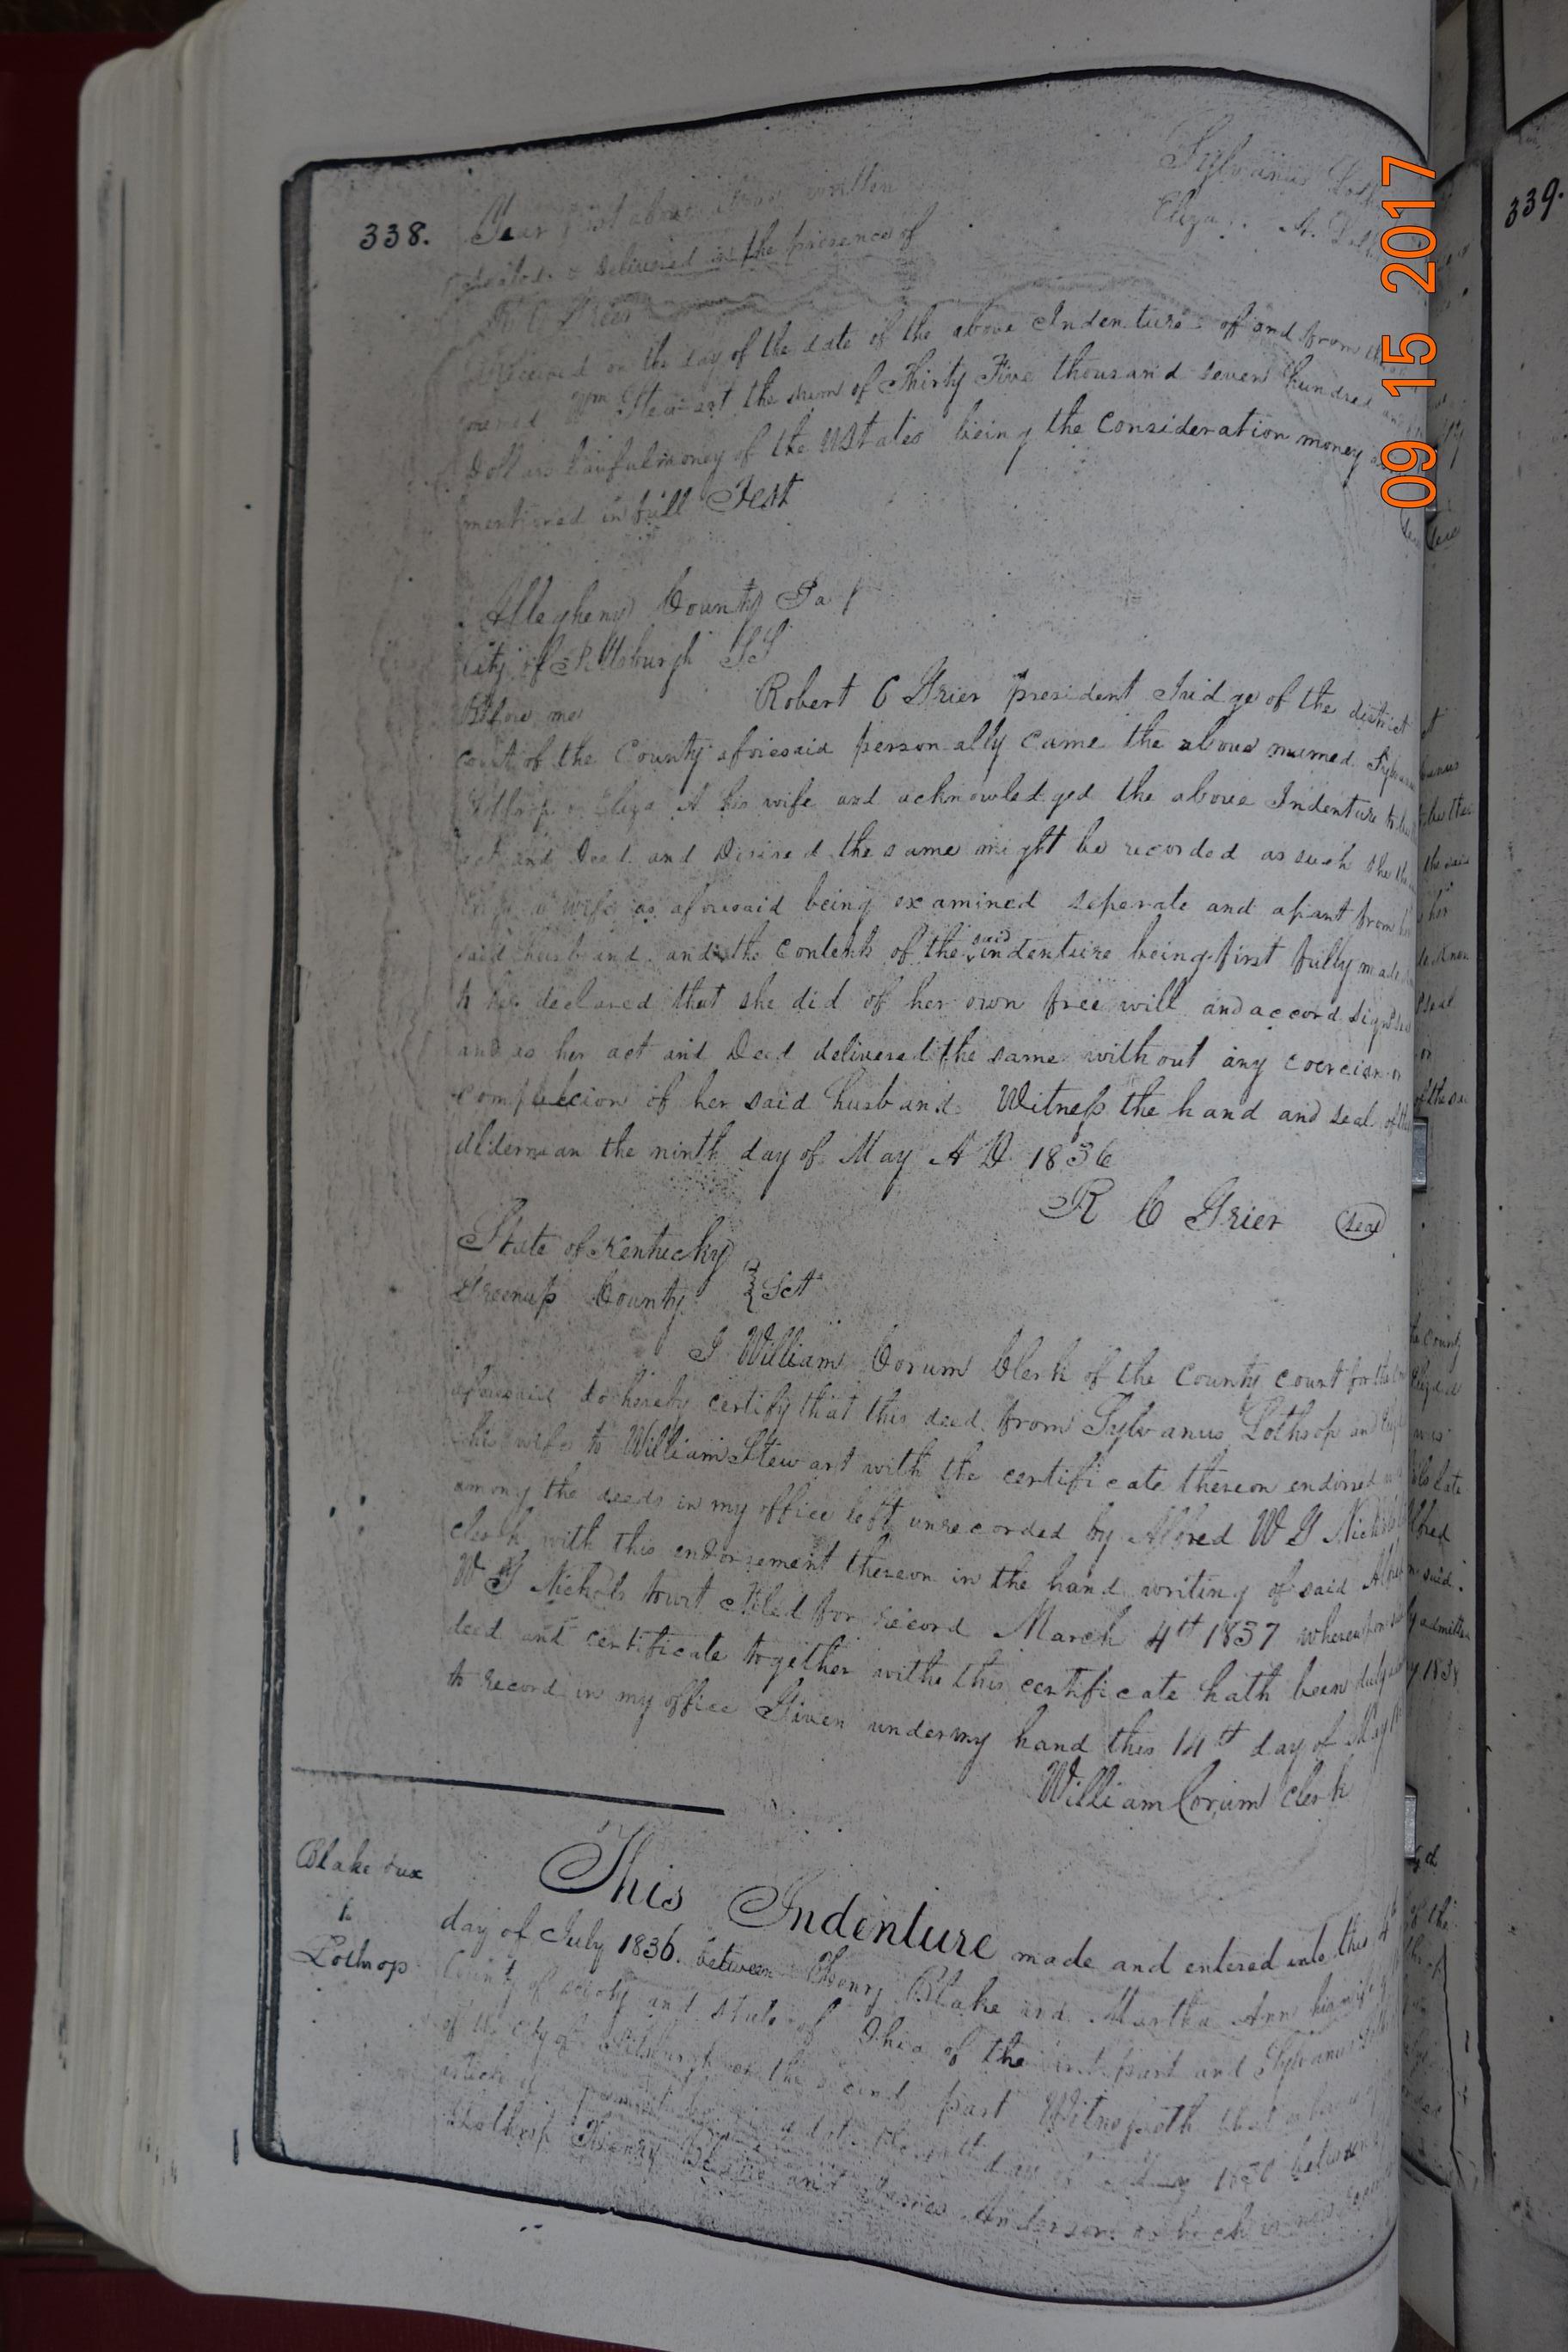 338.
Year first above written
Sealed & delivered in the presence of
Sylvanus
Eliza A.
Received on the day of the date of the above Indenture of and from the
named Wm Stewart the sum of Thirty Five thousand seven hundred and
Dollars lawful money of the U States being the consideration money
mentioned in full Test
Allegheny County Pa
City of Pittsburgh SS
Before me Robert C Grier president Judge of the district
court of the County aforesaid personally came the above named Sylvanus
Lothrop & Eliza A his wife and acknowledged the above Indenture to be their
act and Deed and Desired the same might be recorded as such She the said
wife as aforesaid being examined seperate and apart from her
said husband and the contents of the said indenture being first fully made
to her declared that she did of her own free will and accord sign seal
and as her act and Deed delivered the same without any coercion or
compulcion of her said husband Witness the hand and seal of the
alderman the ninth day of May A D 1836
R C Grier Seal
State of Kentucky
Greenup County } Sct
I William Corum Clerk of the County court for the county
aforesaid do hereby certify that this deed from Sylvanus Lothrop and Eliza
his wife to William Stewart with the certificate thereon endorsed was
among the deeds in my office left unrecorded by Alfred W G Nichols late
clerk with this endorsement thereon in the hand writing of said Alfred
W G Nichols towit Filed for record March 4th 1837 whereupon said
deed and certificate together withe this certificate hath been duly admitted
to record in my office Given under my hand this 14th day of May 1838
William Corum Clerk
Blake & ux
to
Lothrop
This Indenture made and entered into this 4th
day of July 1836. between Henry Blake and Martha Ann his wife
County of Scioto and State of Ohio of the first part and Sylvanus
of the City of Pittsburgh of the second part Witnesseth that
day of 1836 between
Lothrop Henry Blake and James Anderson
09 15 2017
339.